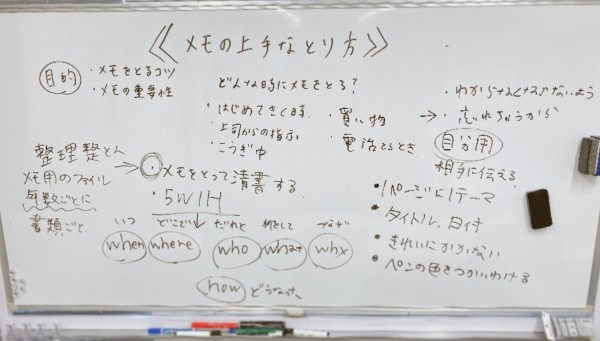 《メモの上手なとり方》
目的
・メモをとるコツ
・メモの重要性
どんな時にメモをとる?
・はじめてきく時
・上司からの指示
・こうぎ中
・買い物
・電話とるとき
・わからなくなるないよう
→ 忘れちゃうから
自分用
相手に伝える
整理整とん
メモ用のファイル
年数ごとに
書類ごと
→ メモをとって清書する
・5W1H
いつ どこで だれと 何をして なぜ
when where who what why
how どうなった
・1ページに1テーマ
・タイトル、日付
・きれいにかかない
・ペンの色をつかいわける